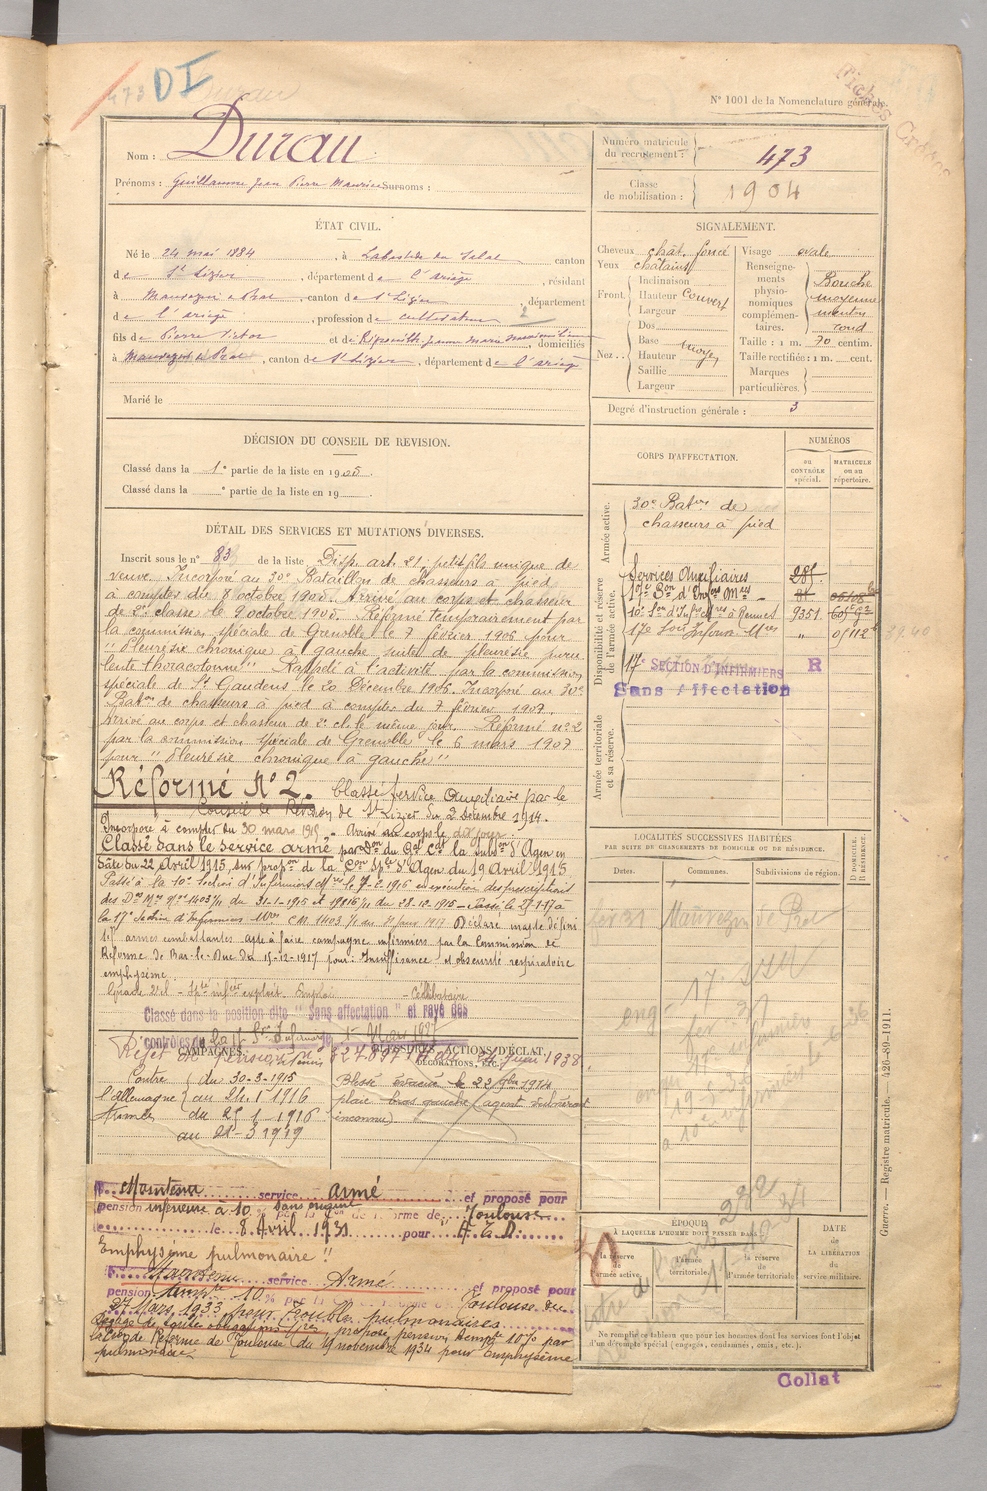 473 DI
N° 1001 de la Nomenclature générale.
Nom : Durau
Prénoms : Guillaume Jean Pierre Maurice Surnoms :
Numéro matricule du recrutement : 473
Classe de mobilisation : 1904
ÉTAT CIVIL.
Né le 24 mai 1884, à Labastide du Salat canton
de St Lizier, département de l'ariège, résidant
à Mauvezin de Prat, canton de St Lizier, département
de l'ariège, profession de cultivateur
fils de Pierre Victor et de jeanne Marie domiciliés
à Mauvezin de Prat, canton de St Lizier, département de l'ariège
Marié le
SIGNALEMENT.
Cheveux chât. foncé
Yeux châtains
Front :
Inclinaison
Hauteur couvert
Largeur
Nez :
Dos
Base moyen
Hauteur
Saillie
Largeur
Visage ovale
Renseignements physionomiques complémentaires.
Bouche
moyenne
menton
rond
Taille : 1 m. 70 centim.
Taille rectifiée : 1 m. cent.
Marques particulières.
Degré d'instruction générale : 3
DÉCISION DU CONSEIL DE REVISION.
Classé dans la 1e partie de la liste en 1905.
Classé dans la e partie de la liste en 19
DÉTAIL DES SERVICES ET MUTATIONS DIVERSES.
Inscrit sous le n° 83 de la liste Disp. art. 21, petit fils unique de
veuve. Incorporé au 30e Bataillon de chasseurs à pied
à compter du 8 octobre 1905. Arrivé au corps et chasseur
de 2e classe le 9 octobre 1905. Réformé temporairement par
la commission spéciale de Grenoble le 7 février 1906 pour
"Pleurésie chronique à gauche suite de pleurésie puru
lente thoracotomie" Rappelé à l'activité par la commission
spéciale de St Gaudens le 20 Décembre 1906. Incorporé au 30e
Baton de chasseurs à pied à compter du 7 février 1907.
Arrivé au corps et chasseur de 2e cl. le même jour. Réformé n° 2
par la commission spéciale de Grenoble le 6 mars 1907
pour "Pleurésie chronique à gauche"
Réformé N° 2. Classé Service Auxiliaire par le
Conseil de Révision de St Lizier du 2 décembre 1914.
Incorporé à compter du 30 mars 1915. Arrivé au corps le dit jour.
Classé dans le service armé par Don du Gal Cdt la subdon d'Agen en
date du 22 Avril 1915, sur propon de la Con Sple d'Agen du 19 Avril 1915
Passé à la 10e Section d'Infirmiers Mres en exécution des prescriptions
des Don Mlle du 31-1-1915 et du 28-12-1915 - Passé le 27-1-17 à
la 17e Section d'Infirmiers Mres Déclaré inapte défini
tif armes combattantes apte à faire campagne infirmiers par la Commission de
Réforme de Bar-le-Duc du 15-12-1917 pour : Insuffisance et obscurité respiratoire
emphysème.
Célibataire
Classé dans la position dite "Sans affectation" et rayé des
contrôles
Rejet de pension
CAMPAGNES.
Contre l'allemagne
du 30-3-1915
au 24-1-1916
Armées
du 25-1-1916
au 21-3-1919
BLESSURES, ACTIONS D'ÉCLAT, DÉCORATIONS, ETC.
Blessé
plaie bras gauche (agent vulnérant
inconnu)
Maintenu service armé et proposé pour
pension inférieure à 10 % sans
réforme de Toulouse
le 8 Avril 1931 pour
Emphysème pulmonaire !!
Maintenu service Armé et proposé pour
pension tempre 10 % Toulouse du
27 Mars 1933 pour Troubles pulmonaires
Dégagé de toutes obligations mres proposé pension tempre 10% par
la Con de Réforme de Toulouse du 19 novembre 1934 pour Emphysème
pulmonaire
CORPS D'AFFECTATION.
NUMÉROS
au CONTRÔLE spécial.
MATRICULE ou au répertoire.
Armée active.
30e Baton de
chasseurs à pied
Disponibilité et réserve de l'armée active.
Services Auxiliaires 281
17e Son d'Infers Mres
10e Son d'Infers Mres à Rennes 9351
17e Son Infirm. Mres "
17e SECTION D'INFIRMIERS R
Sans Affectation
Armée territoriale et sa réserve.
LOCALITÉS SUCCESSIVES HABITÉES
PAR SUITE DE CHANGEMENTS DE DOMICILE OU DE RÉSIDENCE.
Dates.
Communes.
Subdivisions de région.
D DOMICILE. R RÉSIDENCE.
Mauvezin de Prat
ÉPOQUE
À LAQUELLE L'HOMME DOIT PASSER DANS
la réserve de l'armée active.
l'armée territoriale.
la réserve de l'armée territoriale
DATE de LA LIBÉRATION du service militaire.
Ne remplir ce tableau que pour les hommes dont les services font l'objet
d'un décompte spécial (engagés, condamnés, omis, etc.).
Guerre. — Registre matricule. — 426-89-1911.
Collat